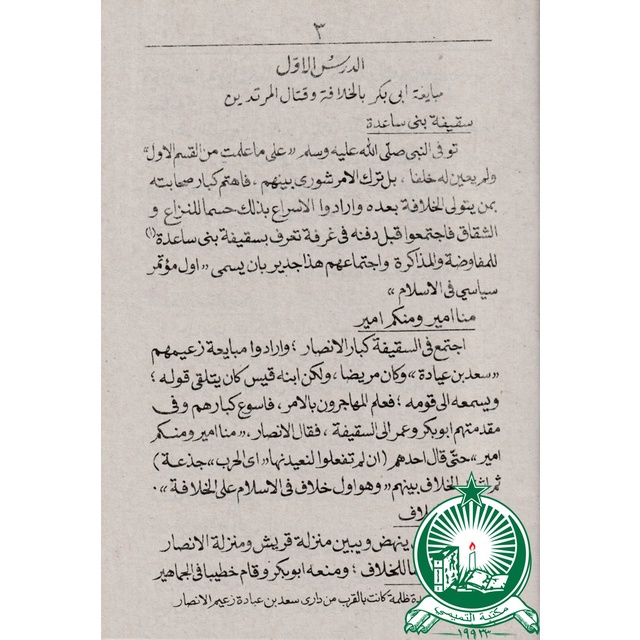 ٣
الدرس الاول
مبايعة ابى بكر بالخلافة وقتال المرتدين
سقيفة بنى ساعدة
توفى النبى صلى الله عليه وسلم «على ما علمت من القسم الاول»
ولم يعين له خلفا ، بل ترك الامر شورى بينهم ، فاهتم كبار صحابته
بمن يتولى الخلافة بعده وارادوا الاسراع بذلك حسما للنزاع و
الشقاق فاجتمعوا قبل دفنه فى غرفة تعرف بسقيفة بنى ساعدة (١)
للمفاوضة والمذاكرة واجتماعهم هذا جدير بان يسمى «اول مؤتمر
سياسي فى الاسلام »
منا امير ومنكم امير
اجتمع فى السقيفة كبار الانصار ؛ وارادوا مبايعة زعيمهم
«سعد بن عبادة» وكان مريضا ، ولكن ابنه قيس كان يتلقى قوله ؛
ويسمعه الى قومه ؛ فعلم المهاجرون بالامر ، فاسوع كبارهم وفى
مقدمتهم ابوبكر وعمر الى السقيفة ، فقال الانصار ، «منا امير ومنكم
امير» حتى قال احدهم (ان لم تفعلوا لنعيدنها» اى الحرب» جذعة)
ثم الخلاف بينهم «وهو اول خلاف فى الاسلام على الخلافة» ٠
لاف
ينهض ويبين منزلة قريش ومنزلة الانصار
للخلاف ؛ ومنعه ابوبكر وقام خطيبا فى الجماهير
ظلمة كانت بالقرب من دارى سعد بن عبادة زعيم الانصار
مكتبة التميمي
١٩٩٣